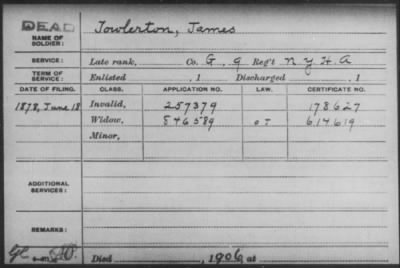 DEAD
NAME OF SOLDIER: Towlerton, James
SERVICE: Late rank, Co. G, 9 Reg't N.Y.H.A
TERM OF SERVICE: Enlisted , 1 Discharged , 1
DATE OF FILING. CLASS. APPLICATION NO. LAW. CERTIFICATE NO.
1878, June 18 Invalid, 257379 178627
Widow, 846589 O T 614619
Minor,
ADDITIONAL SERVICES:
REMARKS:
Died , 1906, at